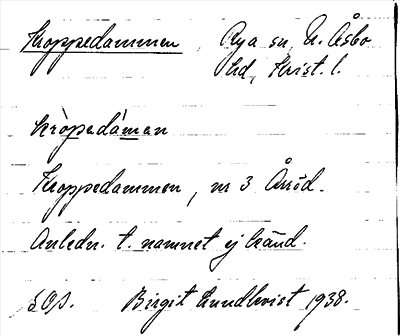 Kroppedammen, Rya sn, N. Åsbo
hd, Krist. l.
kròpedáman
Kroppedammen, nr 3 Årröd.
Anledn. t. namnet ej känd.
Birgit Lundkvist 1938.